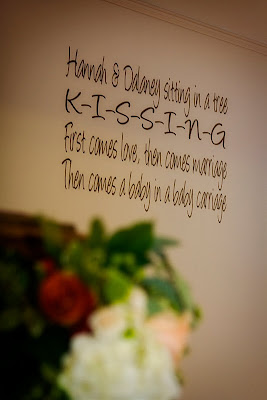 Hannah & Dalaney sitting in a tree
K-I-S-S-I-N-G
First comes love, then comes marriage
Then comes a baby in a baby carriage